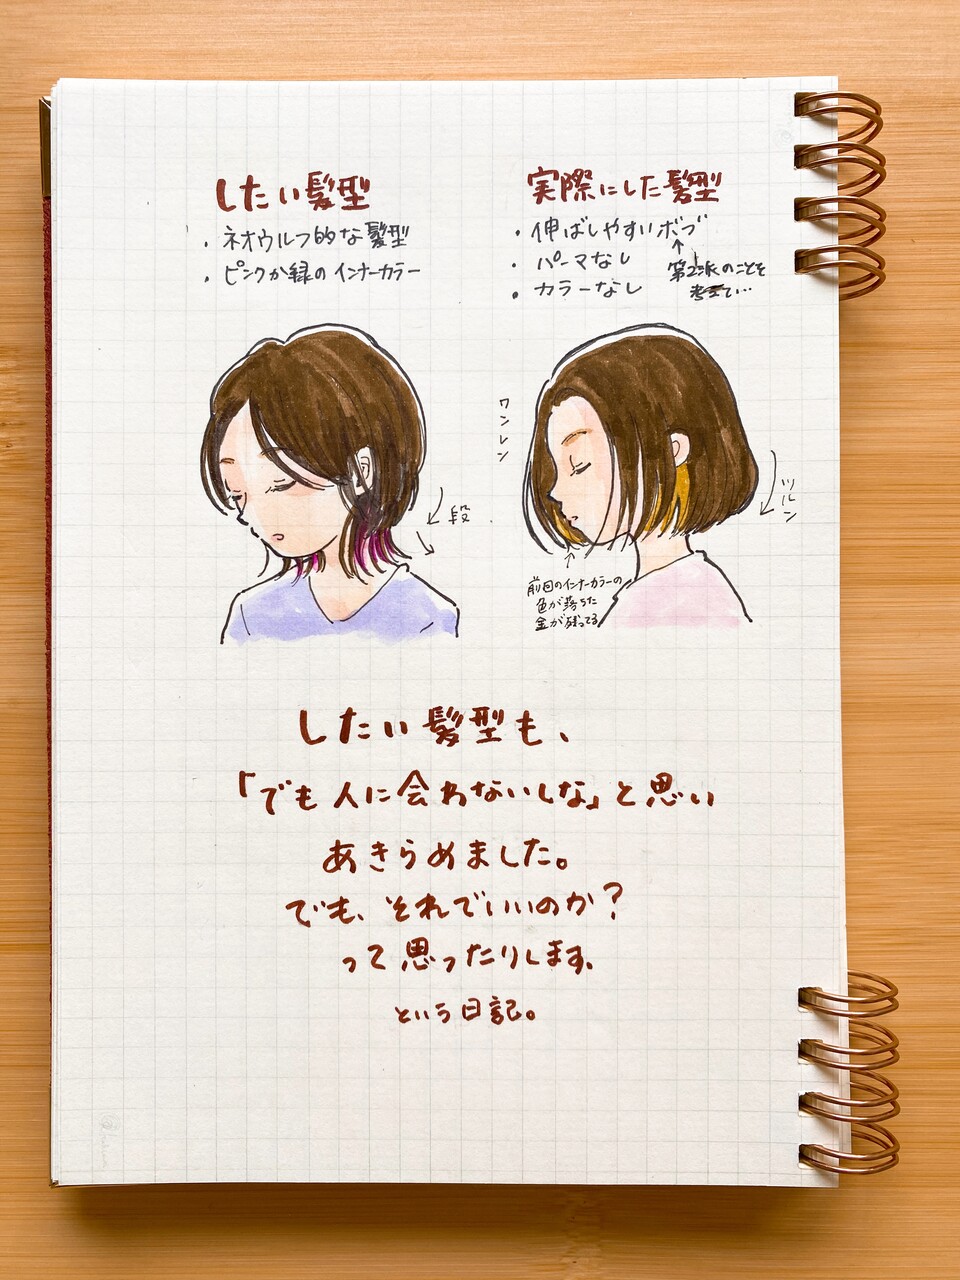 したい髪型
・ネオウルフ的な髪型
・ピンクか緑のインナーカラー
段
実際にした髪型
・伸ばしやすいボブ
・パーマなし
・カラーなし
第2派のことを
考えて…
ワンレン
ツルン
前回のインナーカラーの
色が落ちた
金が残ってる
したい髪型も、
「でも人に会わないしな」と思い
あきらめました。
でも、それでいいのか?
って思ったりします。
という日記。